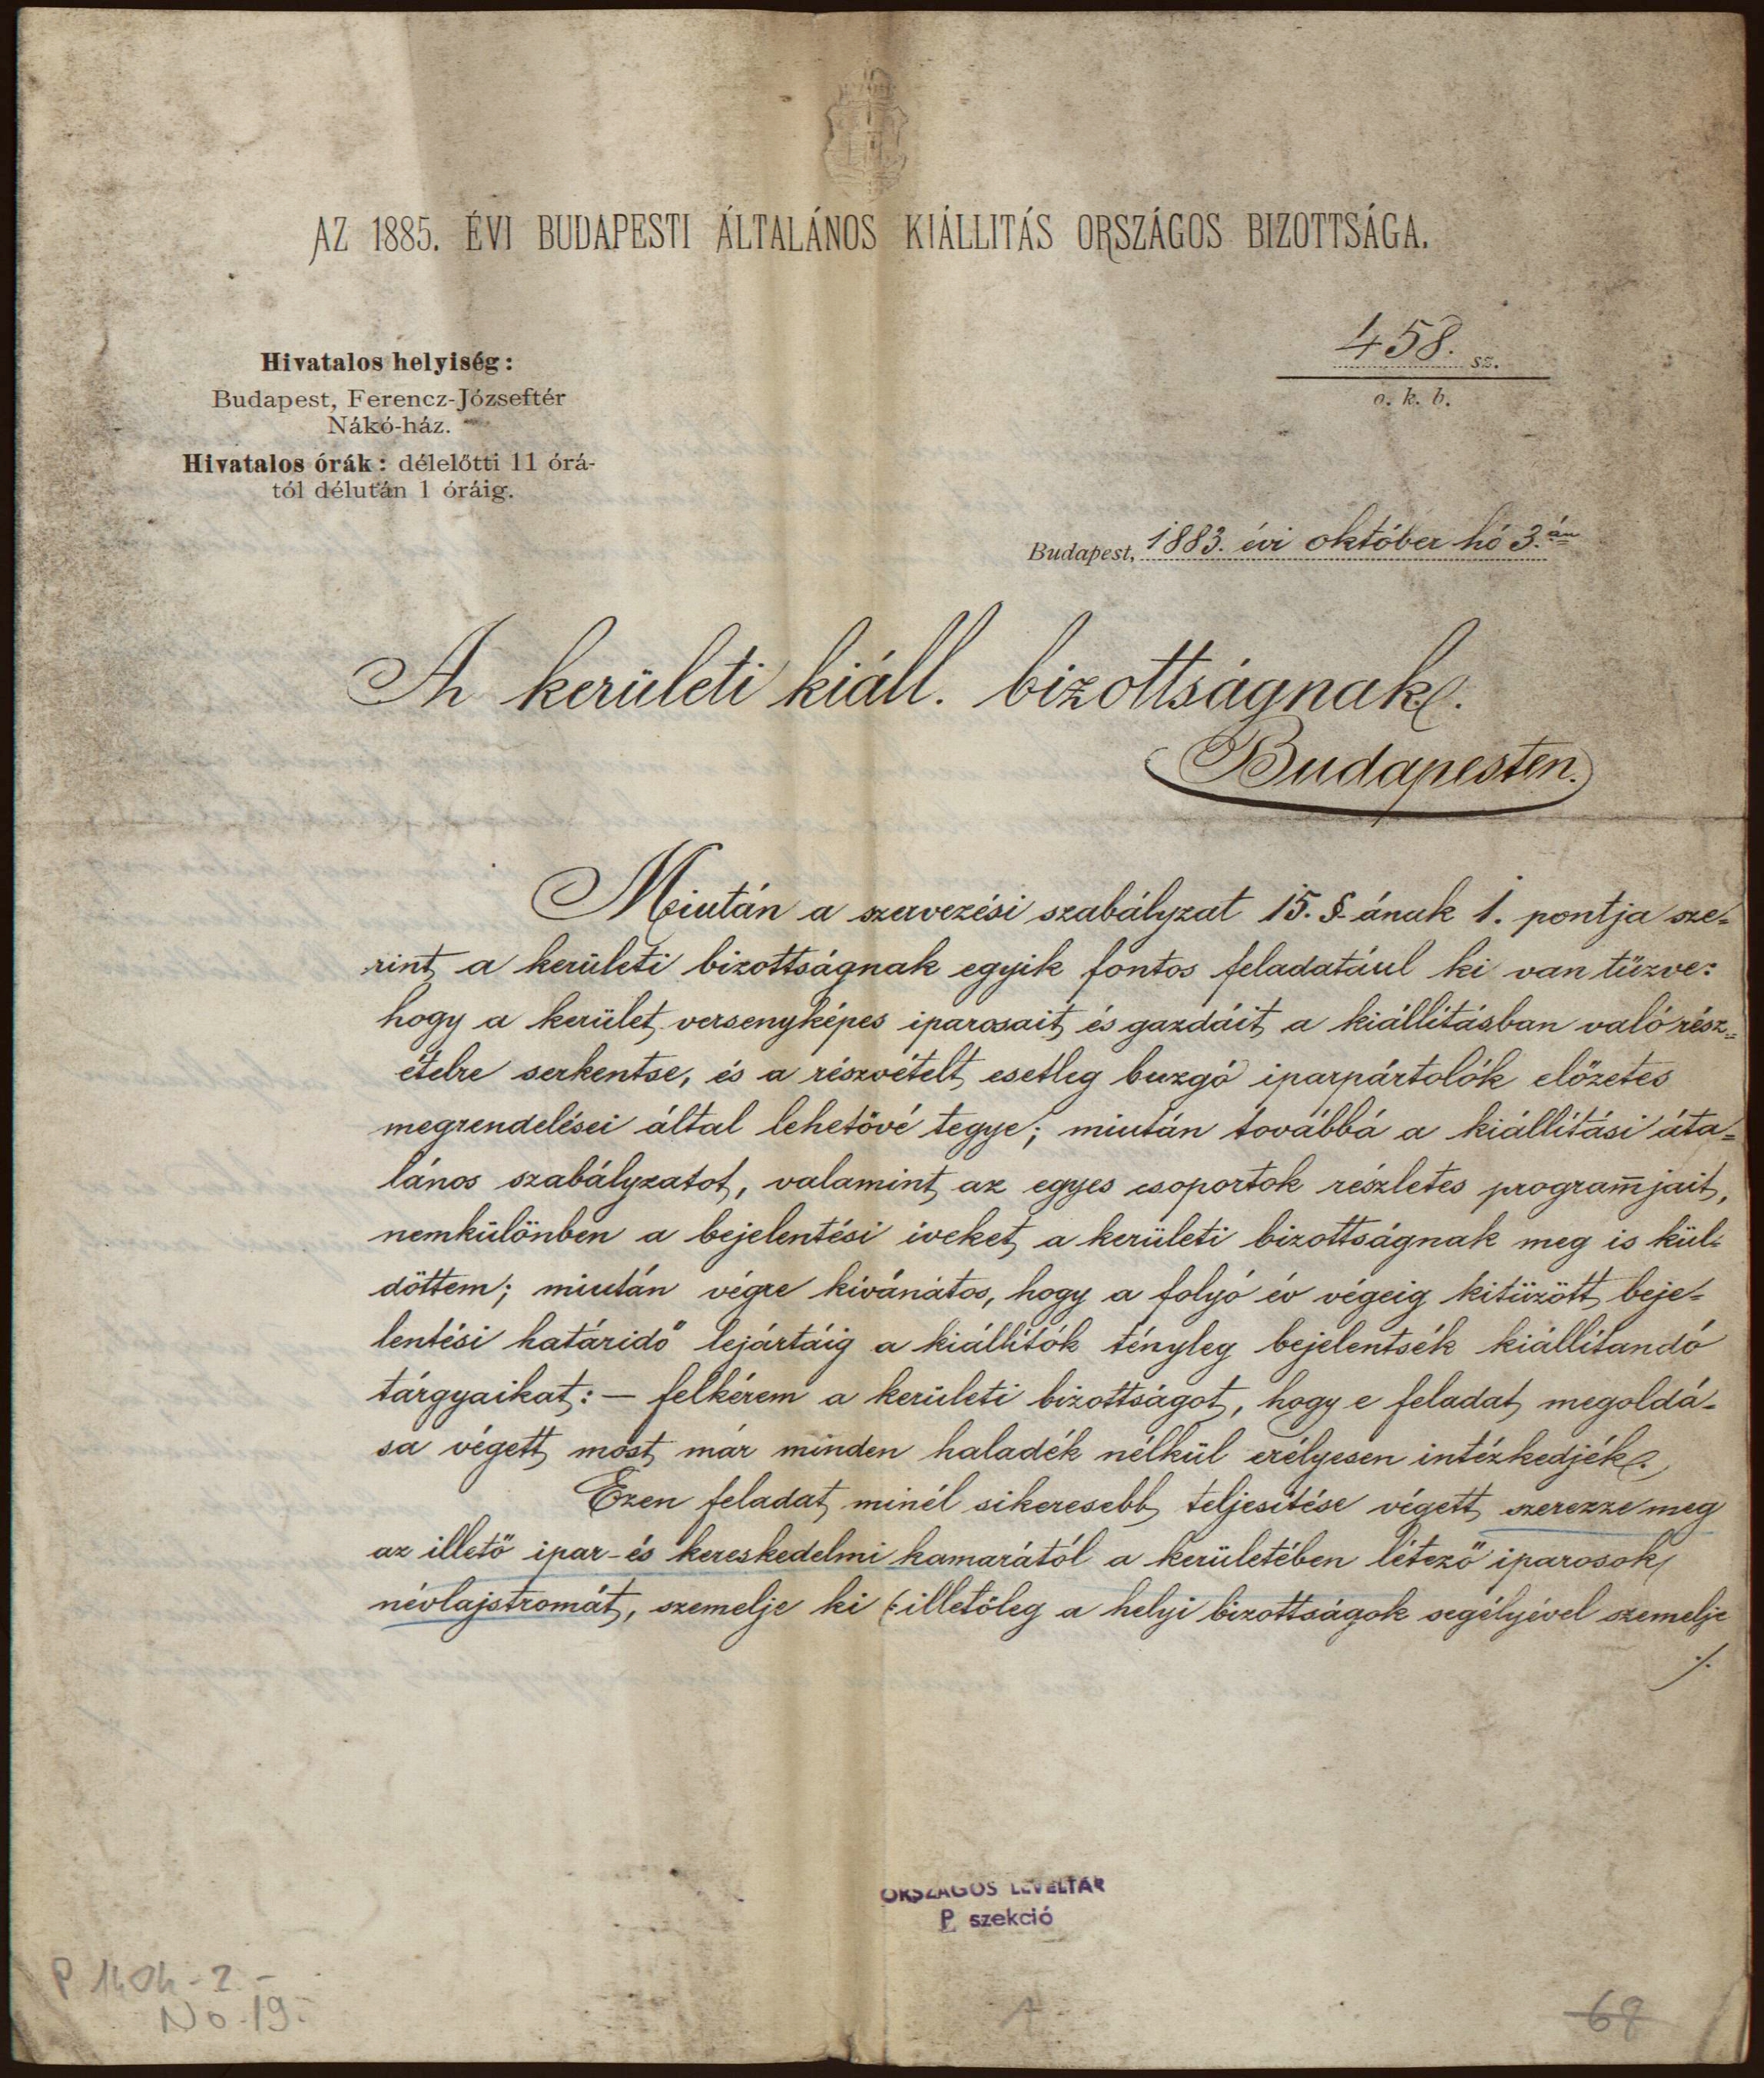 AZ 1885. ÉVI BUDAPESTI ÁLTALÁNOS KIÁLLITÁS ORSZÁGOS BIZOTTSÁGA.
Hivatalos helyiség:
Budapest, Ferencz-Józseftér
Nákó-ház.
Hivatalos órák: délelőtti 11 órá-
tól délután 1 óráig.
458. sz.
o. k. b.
Budapest, 1883. évi október hó 3.án
A kerületi kiáll. bizottságnak.
Budapesten.
Miután a szervezési szabályzat 15. §-ának 1. pontja sze-
rint a kerületi bizottságnak egyik fontos feladatául ki van tűzve:
hogy a kerület versenyképes iparosait és gazdáit a kiállításban való rész-
ételre serkentse, és a részvételt esetleg buzgó iparpártolók előzetes
megrendelései által lehetővé tegye; miután továbbá a kiállítási áta-
lános szabályzatot, valamint az egyes csoportok részletes program̅jait,
nemkülönben a bejelentési iveket a kerületi bizottságnak meg is kül-
döttem; miután végre kívánatos, hogy a folyó év végeig kitűzött beje-
lentési határidő lejártáig a kiállítók tényleg bejelentsék kiállítandó
tárgyaikat: — felkérem a kerületi bizottságot, hogy e feladat megoldá-
sa végett most már minden haladék nélkül erélyesen intézkedjék.
Ezen feladat minél sikeresebb teljesítése végett szerezze meg
az illető ipar- és kereskedelmi kamarától a kerületében létező iparosok
névlajstromát, szemelje ki (: illetőleg a helyi bizottságok segélyével szemelje
./.
ORSZÁGOS LEVÉLTÁR
P szekció
P 1404-2-
No. 19.
68